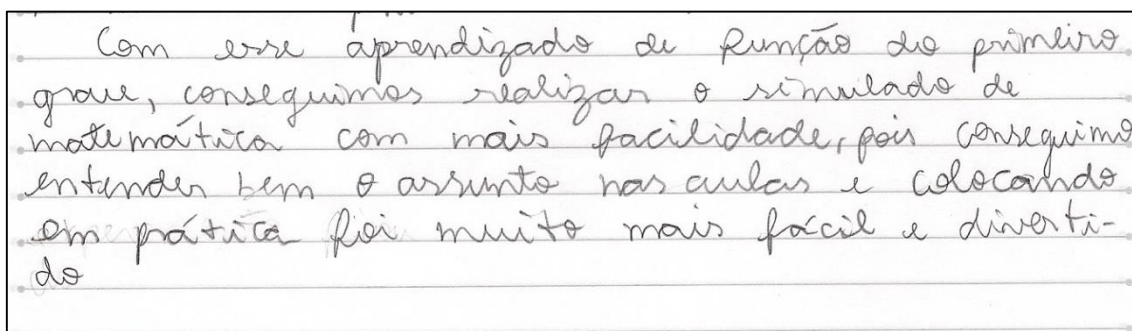 Com esse aprendizado de função do primeiro
grau, conseguimos realizar o simulado de
matemática com mais facilidade, pois conseguimo
entender bem o assunto nas aulas e colocando
em prática foi muito mais fácil e diverti-
do